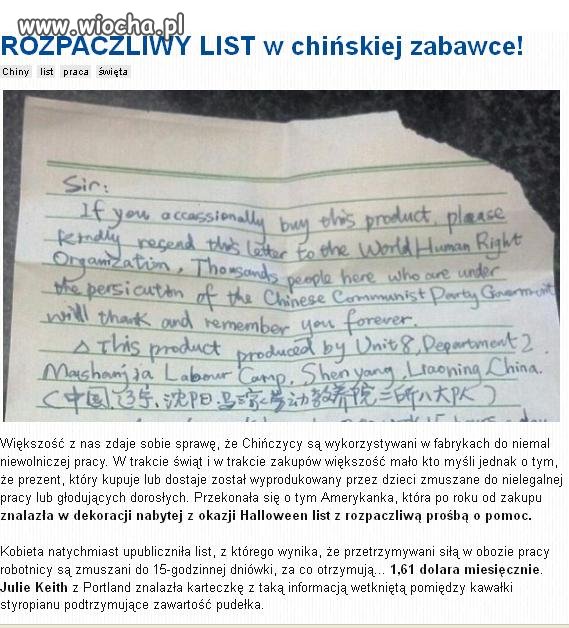 www.wiocha.pl
ROZPACZLIWY LIST w chińskiej zabawce!
Chiny list praca święta
Sir:
If you accassionally buy this product, please
kindly resend this letter to the World Human Right
Organization, Thousands people here who are under
the persicution of the Chinese Communist Party Government
will thank and remember you forever.
△ This product produced by Unit 8, Department 2
Mashanjia Labour Camp, Shenyang, Liaoning, China.
(中国，辽宁，沈阳，马三家劳动教养院二所八大队)
15 hours a day
Większość z nas zdaje sobie sprawę, że Chińczycy są wykorzystywani w fabrykach do niemal
niewolniczej pracy. W trakcie świąt i w trakcie zakupów większość mało kto myśli jednak o tym,
że prezent, który kupuje lub dostaje został wyprodukowany przez dzieci zmuszane do nielegalnej
pracy lub głodujących dorosłych. Przekonała się o tym Amerykanka, która po roku od zakupu
znalazła w dekoracji nabytej z okazji Halloween list z rozpaczliwą prośbą o pomoc.
Kobieta natychmiast upubliczniła list, z którego wynika, że przetrzymywani siłą w obozie pracy
robotnicy są zmuszani do 15-godzinnej dniówki, za co otrzymują... 1,61 dolara miesięcznie.
Julie Keith z Portland znalazła karteczkę z taką informacją wetkniętą pomiędzy kawałki
styropianu podtrzymujące zawartość pudełka.